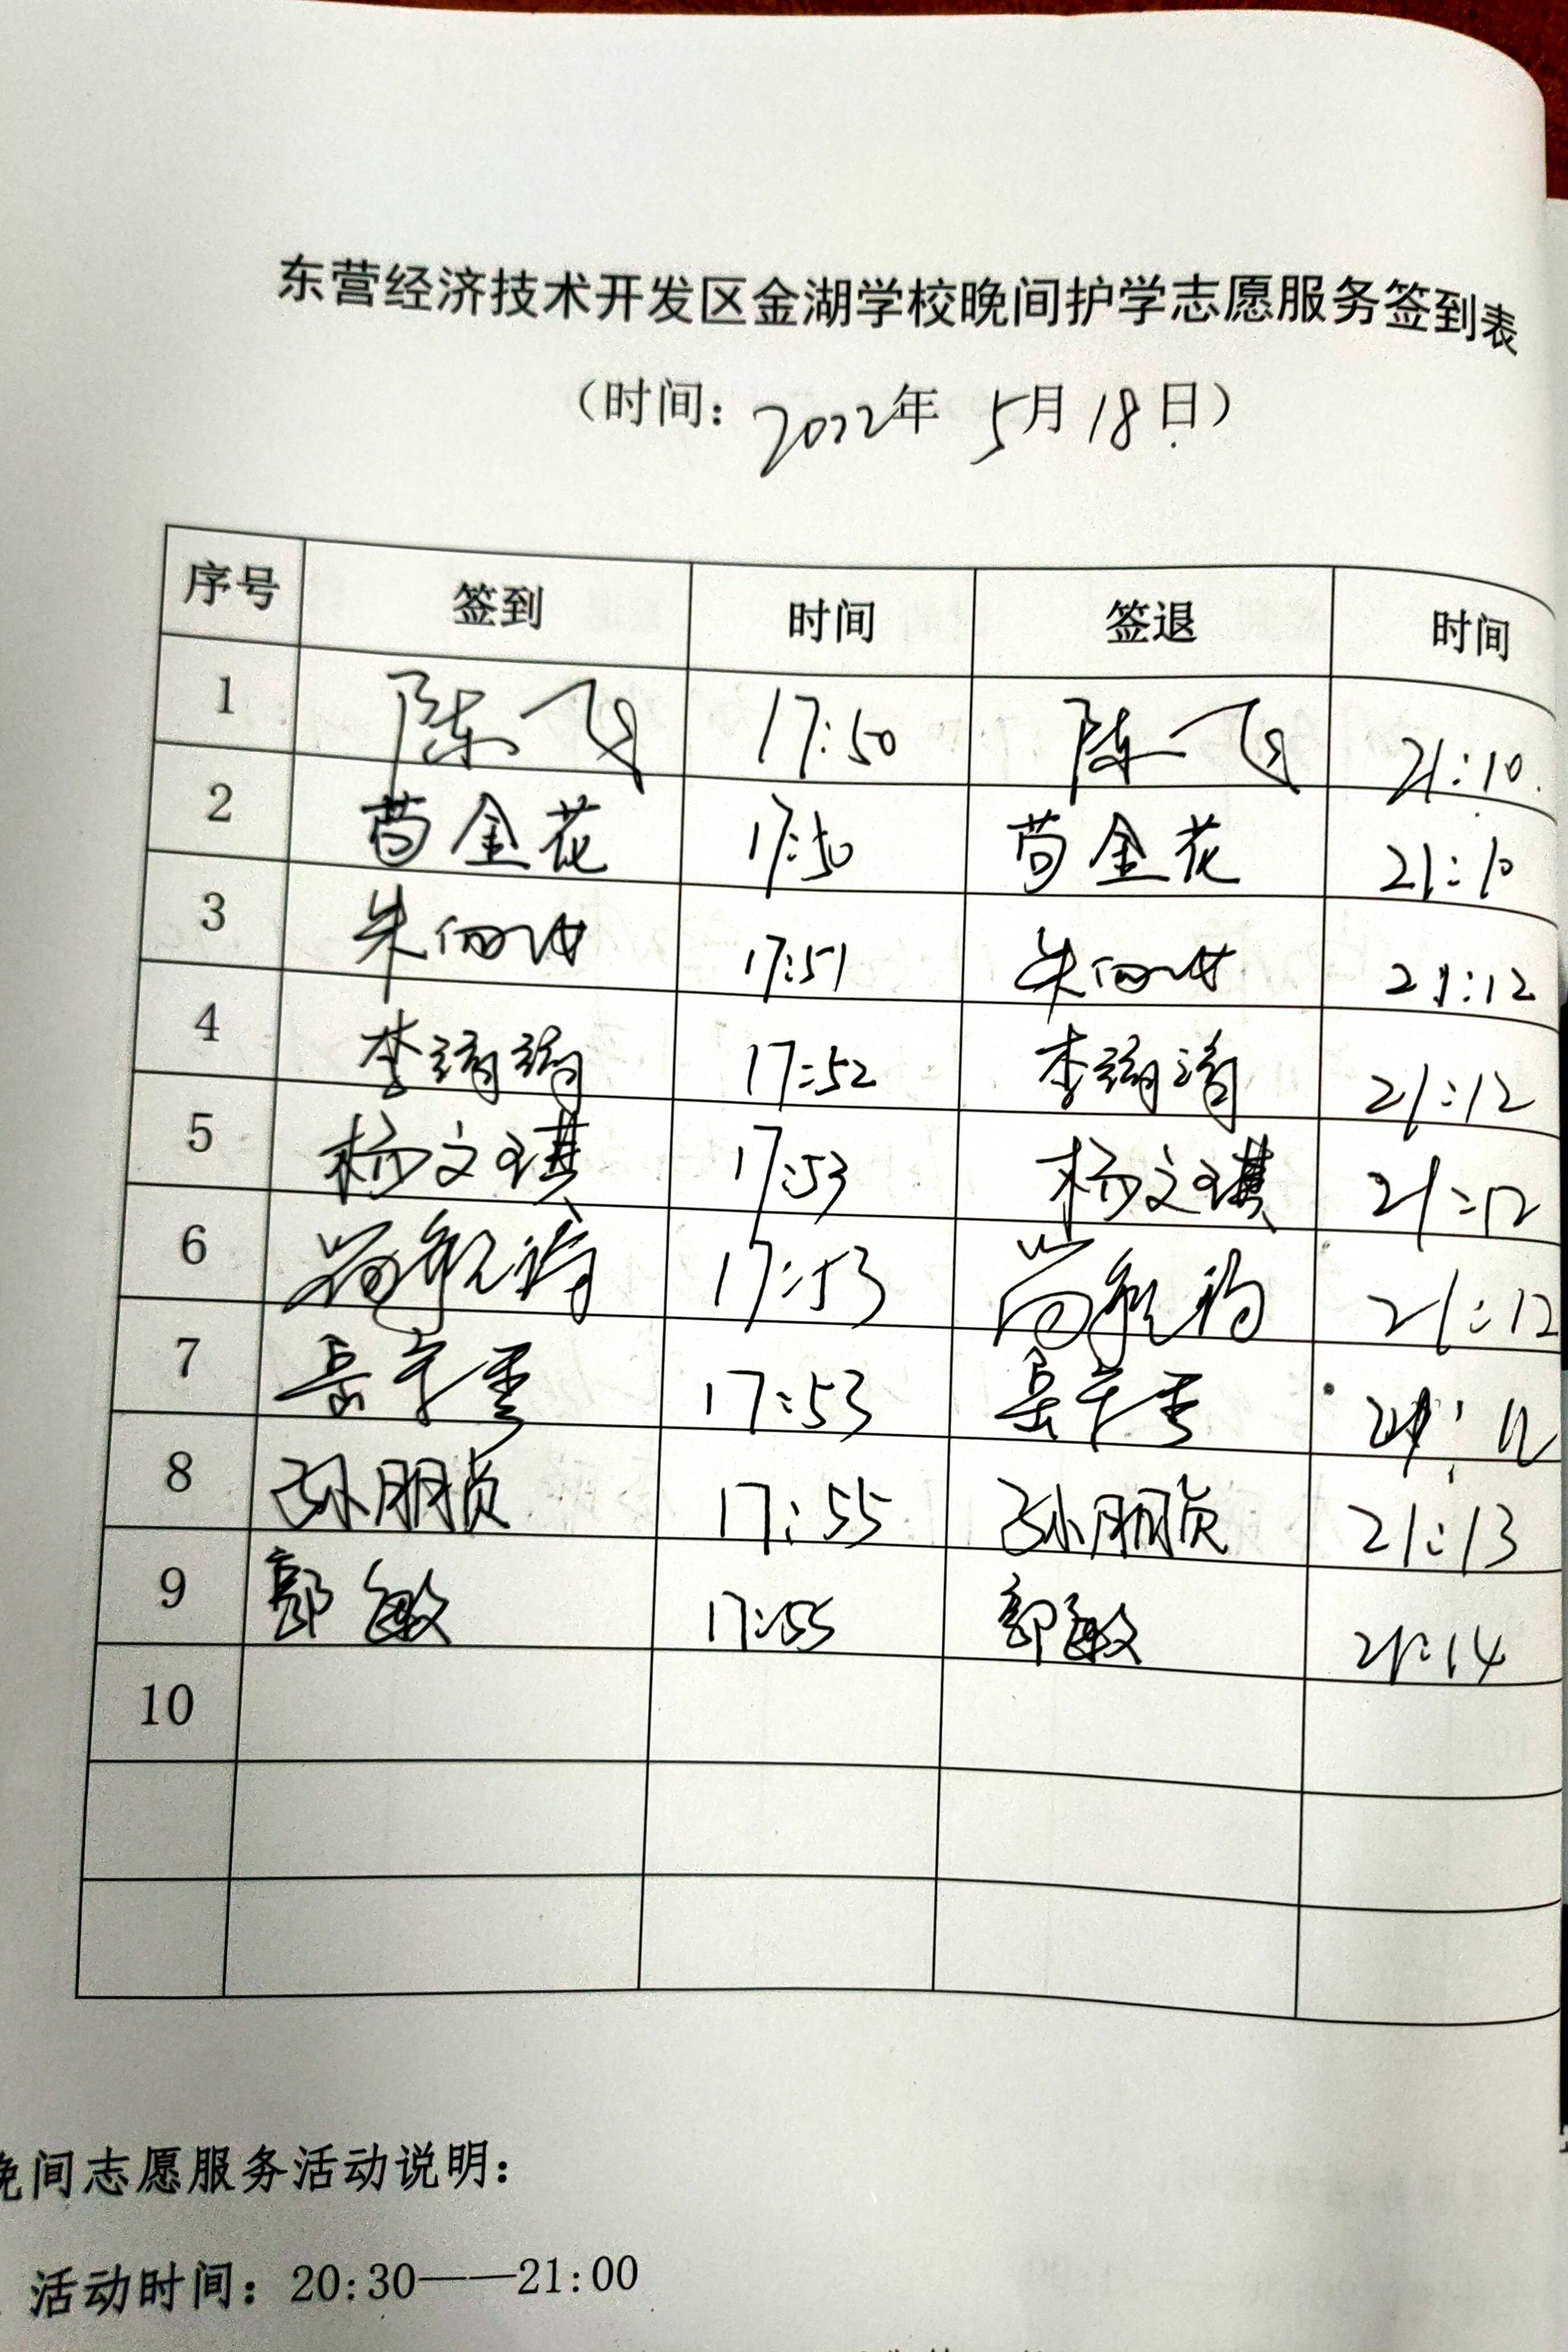 东营经济技术开发区金湖学校晚间护学志愿服务签到表
（时间：2022年 5月18日）
序号 签到 时间 签退 时间
1 陈飞 17:50 陈飞 21:10
2 苟金花 17:50 苟金花 21:10
3 朱 17:51 朱 21:12
4 李 17:52 李 21:12
5 杨文琪 17:53 杨文琪 21:12
6 尚 17:53 尚 21:12
7 岳 17:53 岳 21:12
8 孙朋贞 17:55 孙朋贞 21:13
9 郭敏 17:55 郭敏 21:14
10
晚间志愿服务活动说明：
活动时间：20:30——21:00